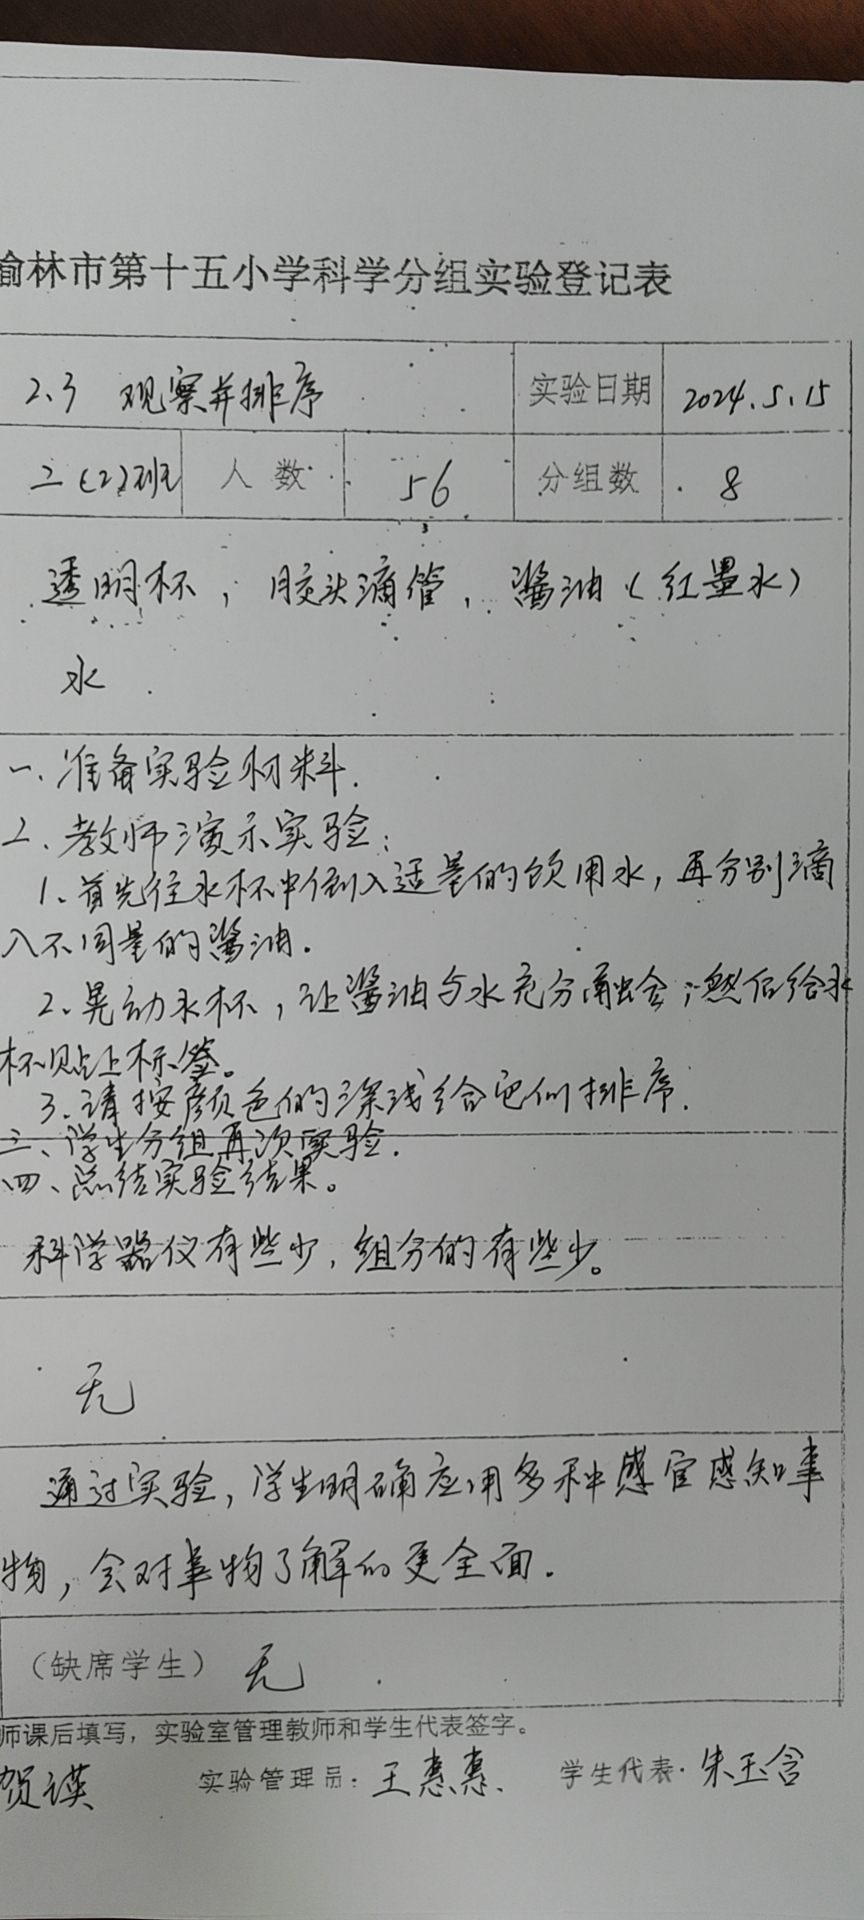 榆林市第十五小学科学分组实验登记表
2.3 观察并排序 实验日期 2024.5.15
二(2)班 人数 56 分组数 8
透明杯，胶头滴管，酱油（红墨水）
水
一、准备实验材料.
2、教师演示实验：
1、首先往水杯中倒入适量的饮用水，再分别滴
入不同量的酱油.
2、晃动水杯，让酱油与水充分融合；然后给水
杯贴上标签。
3、请按颜色的深浅给它们排序.
三、学生分组再次实验.
四、总结实验结果。
科学器仪有些少，组分的有些少。
无
通过实验，学生明确应用多种感官感知事
物，会对事物了解的更全面.
（缺席学生） 无
师课后填写，实验室管理教师和学生代表签字。
贺瑛 实验管理员：王惠惠 学生代表 朱玉含